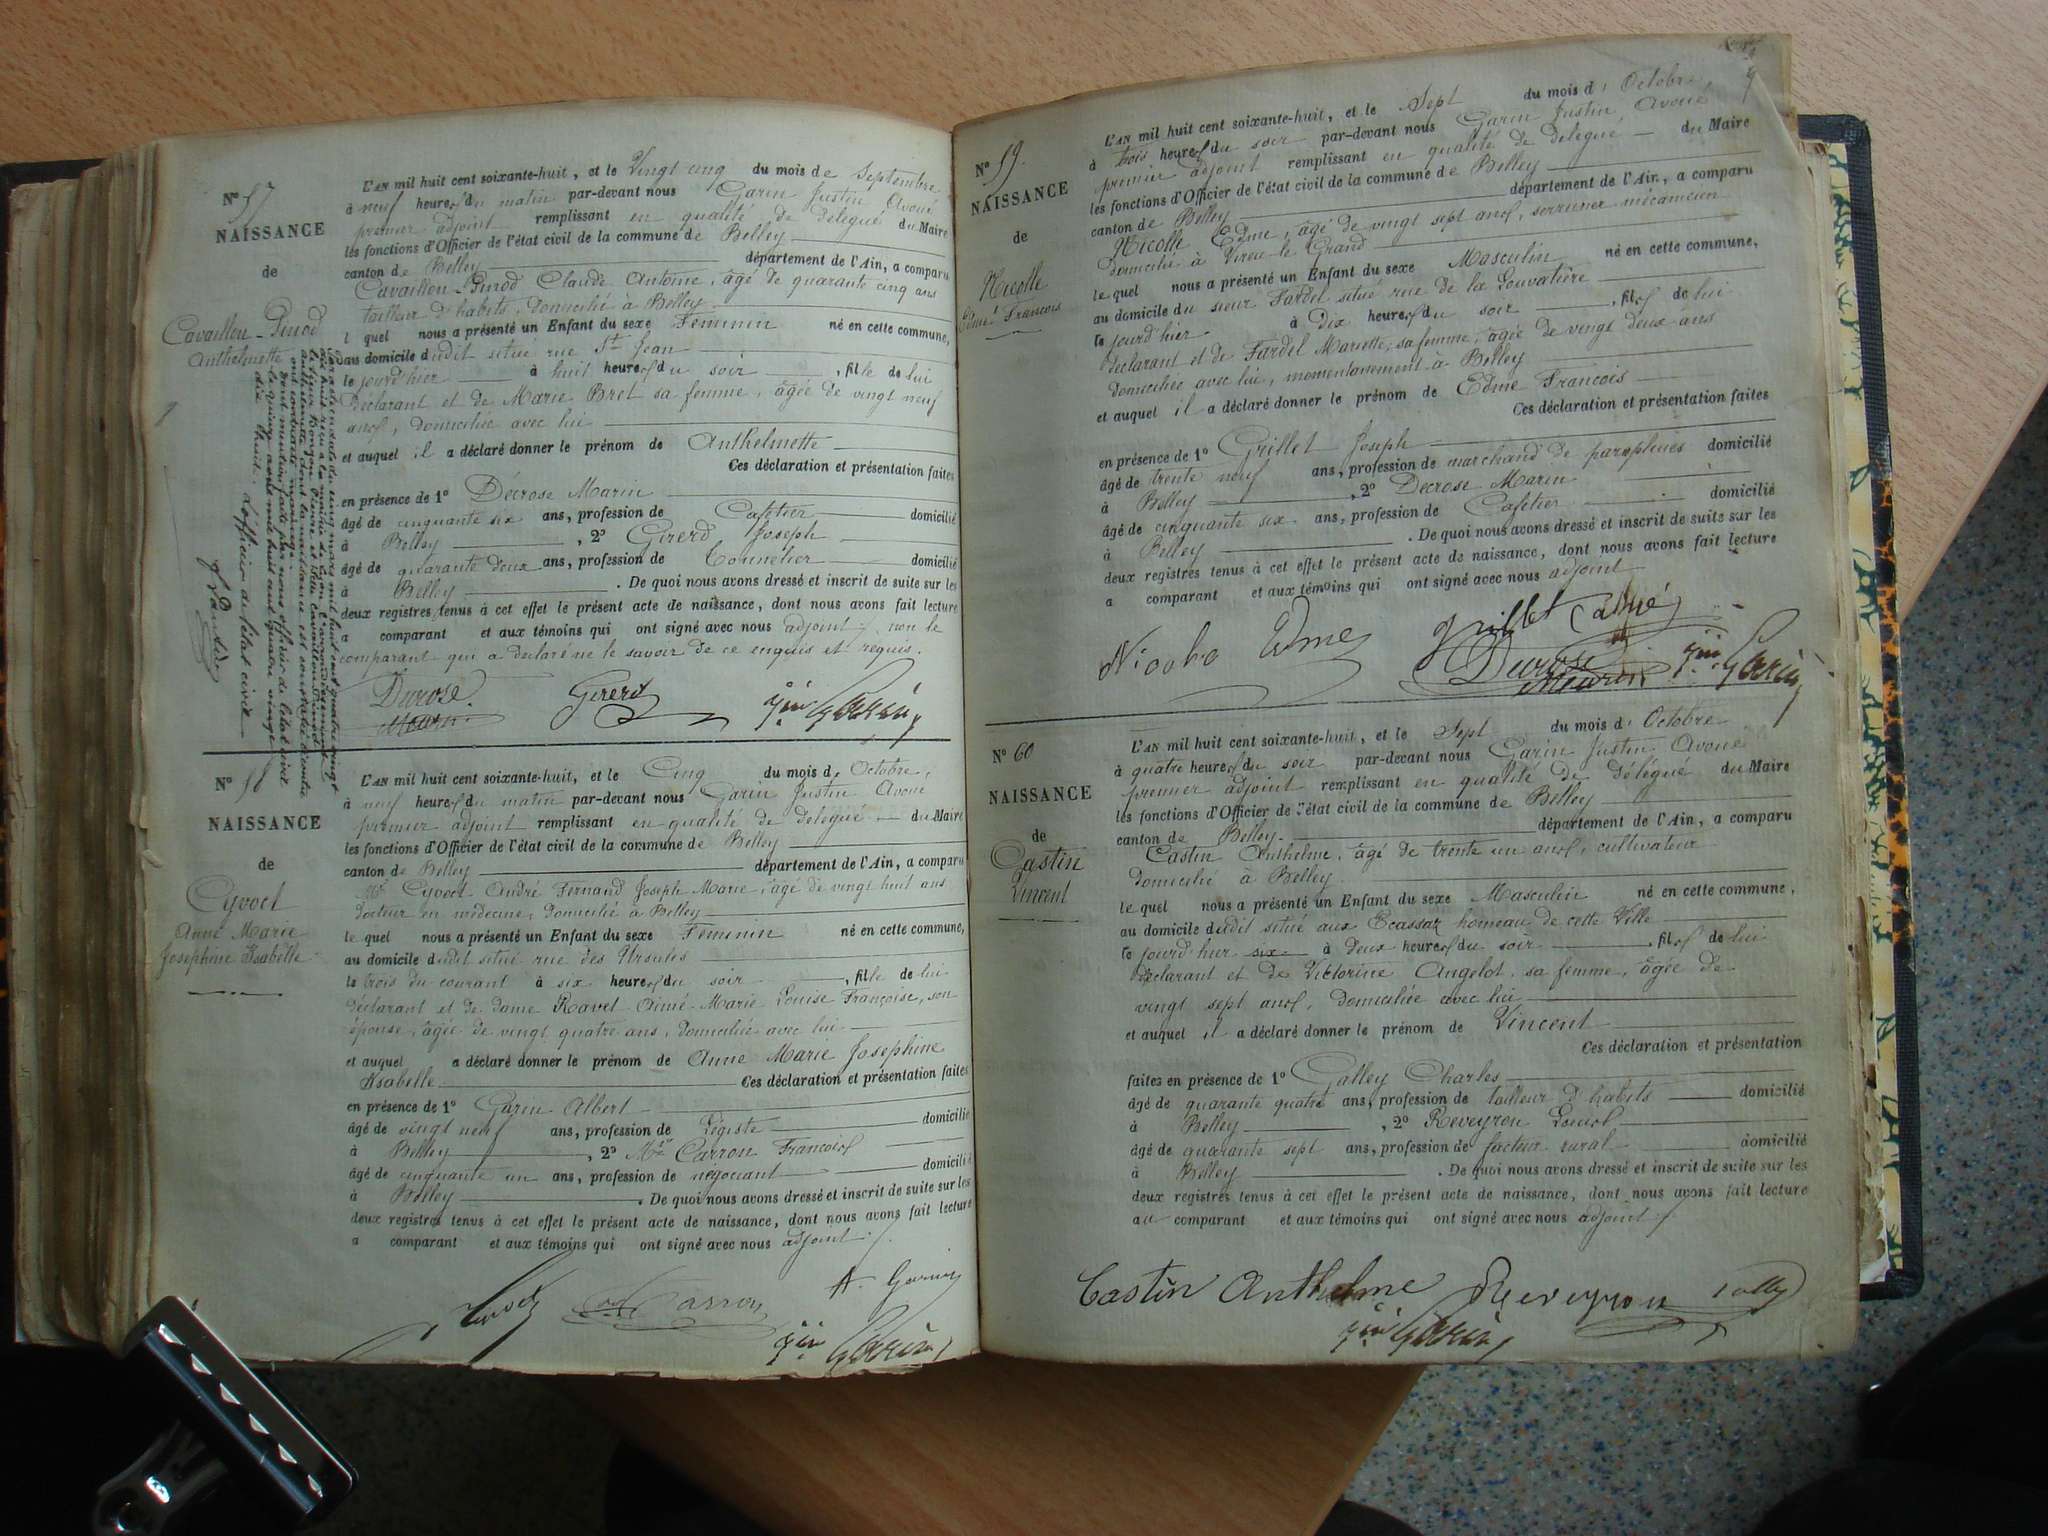 N° 57
NAISSANCE
de
Cavaillon-Pinod
Anthelmette
L'AN mil huit cent soixante-huit, et le Vingt cinq du mois de Septembre
à neuf heures du matin par-devant nous Garin Justin Avoué
premier adjoint remplissant en qualité de délégué du Maire
les fonctions d'Officier de l'état civil de la commune de Belley
canton de Belley département de l'Ain, a comparu
Cavaillon-Pinod Claude Antoine, âgé de quarante cinq ans
tailleur d'habits, domicilié à Belley
l quel nous a présenté un Enfant du sexe Féminin né en cette commune,
au domicile dudit situé rue St Jean
le jourd'hier à huit heures du soir, fille de lui
Déclarant et de Marie Bret sa femme, âgée de vingt neuf
ans, domiciliée avec lui
et auquel il a déclaré donner le prénom de Anthelmette
Ces déclaration et présentation faites
en présence de 1° Décrose Marin
âgé de cinquante six ans, profession de Cafetier domicilié
à Belley, 2° Girerd Joseph
âgé de quarante deux ans, profession de Tonnelier domicilié
à Belley. De quoi nous avons dressé et inscrit de suite sur les
deux registres tenus à cet effet le présent acte de naissance, dont nous avons fait lecture
a comparant et aux témoins qui ont signé avec nous adjoint, non le
comparant qui a déclaré ne le savoir de ce enquis et requis.
Girerd
Garin
l'officier de l'état civil
N° 58
NAISSANCE
de
Cyvoct
Anne Marie
Joséphine Isabelle
L'AN mil huit cent soixante-huit, et le Cinq du mois d' Octobre,
à neuf heures du matin par-devant nous Garin Justin Avoué
premier adjoint remplissant en qualité de délégué du Maire
les fonctions d'Officier de l'état civil de la commune de Belley
canton de Belley département de l'Ain, a comparu
Mr Cyvoct André Fernand Joseph Marie, âgé de vingt huit ans
docteur en médecine, domicilié à Belley
le quel nous a présenté un Enfant du sexe Féminin né en cette commune,
au domicile dudit situé rue des Ursules
le trois du courant à six heures du soir, fille de lui
déclarant et de dame Ravet Aimé Marie Louise Françoise, son
épouse, âgée de vingt quatre ans, domiciliée avec lui
et auquel a déclaré donner le prénom de Anne Marie Joséphine
Isabelle Ces déclaration et présentation faites
en présence de 1° Garin Albert
âgé de vingt neuf ans, profession de Légiste domicilié
à Belley, 2° Carron François
âgé de cinquante un ans, profession de négociant domicilié
à Belley. De quoi nous avons dressé et inscrit de suite sur les
deux registres tenus à cet effet le présent acte de naissance, dont nous avons fait lecture
a comparant et aux témoins qui ont signé avec nous adjoint
A. Garin
Carron
Garin
N° 59.
NAISSANCE
de
Nicolle
Edmé François
L'AN mil huit cent soixante-huit, et le Sept du mois d' Octobre,
à trois heures du soir par-devant nous Garin Justin, Avoué
premier adjoint remplissant en qualité de délégué du Maire
les fonctions d'Officier de l'état civil de la commune de Belley
canton de Belley département de l'Ain, a comparu
Nicolle Edme, âgé de vingt sept ans, serrurier mécanicien
domicilié à Virieu le Grand
le quel nous a présenté un Enfant du sexe Masculin né en cette commune,
au domicile du sieur Fardel situé rue de la Louvatière
le jourd'hier à dix heures du soir, fils de lui
déclarant et de Fardel Mariette, sa femme, âgée de vingt deux ans
domiciliée avec lui, momentanément à Belley
et auquel il a déclaré donner le prénom de Edme François
Ces déclaration et présentation faites
en présence de 1° Grillet Joseph
âgé de trente neuf ans, profession de marchand de parapluies domicilié
à Belley, 2° Décrose Marin
âgé de cinquante six ans, profession de Cafetier domicilié
à Belley. De quoi nous avons dressé et inscrit de suite sur les
deux registres tenus à cet effet le présent acte de naissance, dont nous avons fait lecture
a comparant et aux témoins qui ont signé avec nous adjoint
Garin
N° 60
NAISSANCE
de
Castin
Vincent
L'AN mil huit cent soixante-huit, et le Sept du mois d' Octobre
à quatre heures du soir par-devant nous Garin Justin Avoué
premier adjoint remplissant en qualité de délégué du Maire
les fonctions d'Officier de l'état civil de la commune de Belley
canton de Belley département de l'Ain, a comparu
Castin Anthelme, âgé de trente un ans, cultivateur
domicilié à Belley
le quel nous a présenté un Enfant du sexe Masculin né en cette commune,
au domicile dudit situé aux Ecassaz hameau de cette Ville
le jourd'hui six à deux heures du soir, fils de lui
déclarant et de Victorine Angelot, sa femme, âgée de
vingt sept ans, domiciliée avec lui
et auquel il a déclaré donner le prénom de Vincent
Ces déclaration et présentation
faites en présence de 1° Galley Charles
âgé de quarante quatre ans, profession de tailleur d'habits domicilié
à Belley, 2° Reveyron Louis
âgé de quarante sept ans, profession de facteur rural domicilié
à Belley. De quoi nous avons dressé et inscrit de suite sur les
deux registres tenus à cet effet le présent acte de naissance, dont nous avons fait lecture
au comparant et aux témoins qui ont signé avec nous adjoint
Castin Anthelme Reveyron
Garin